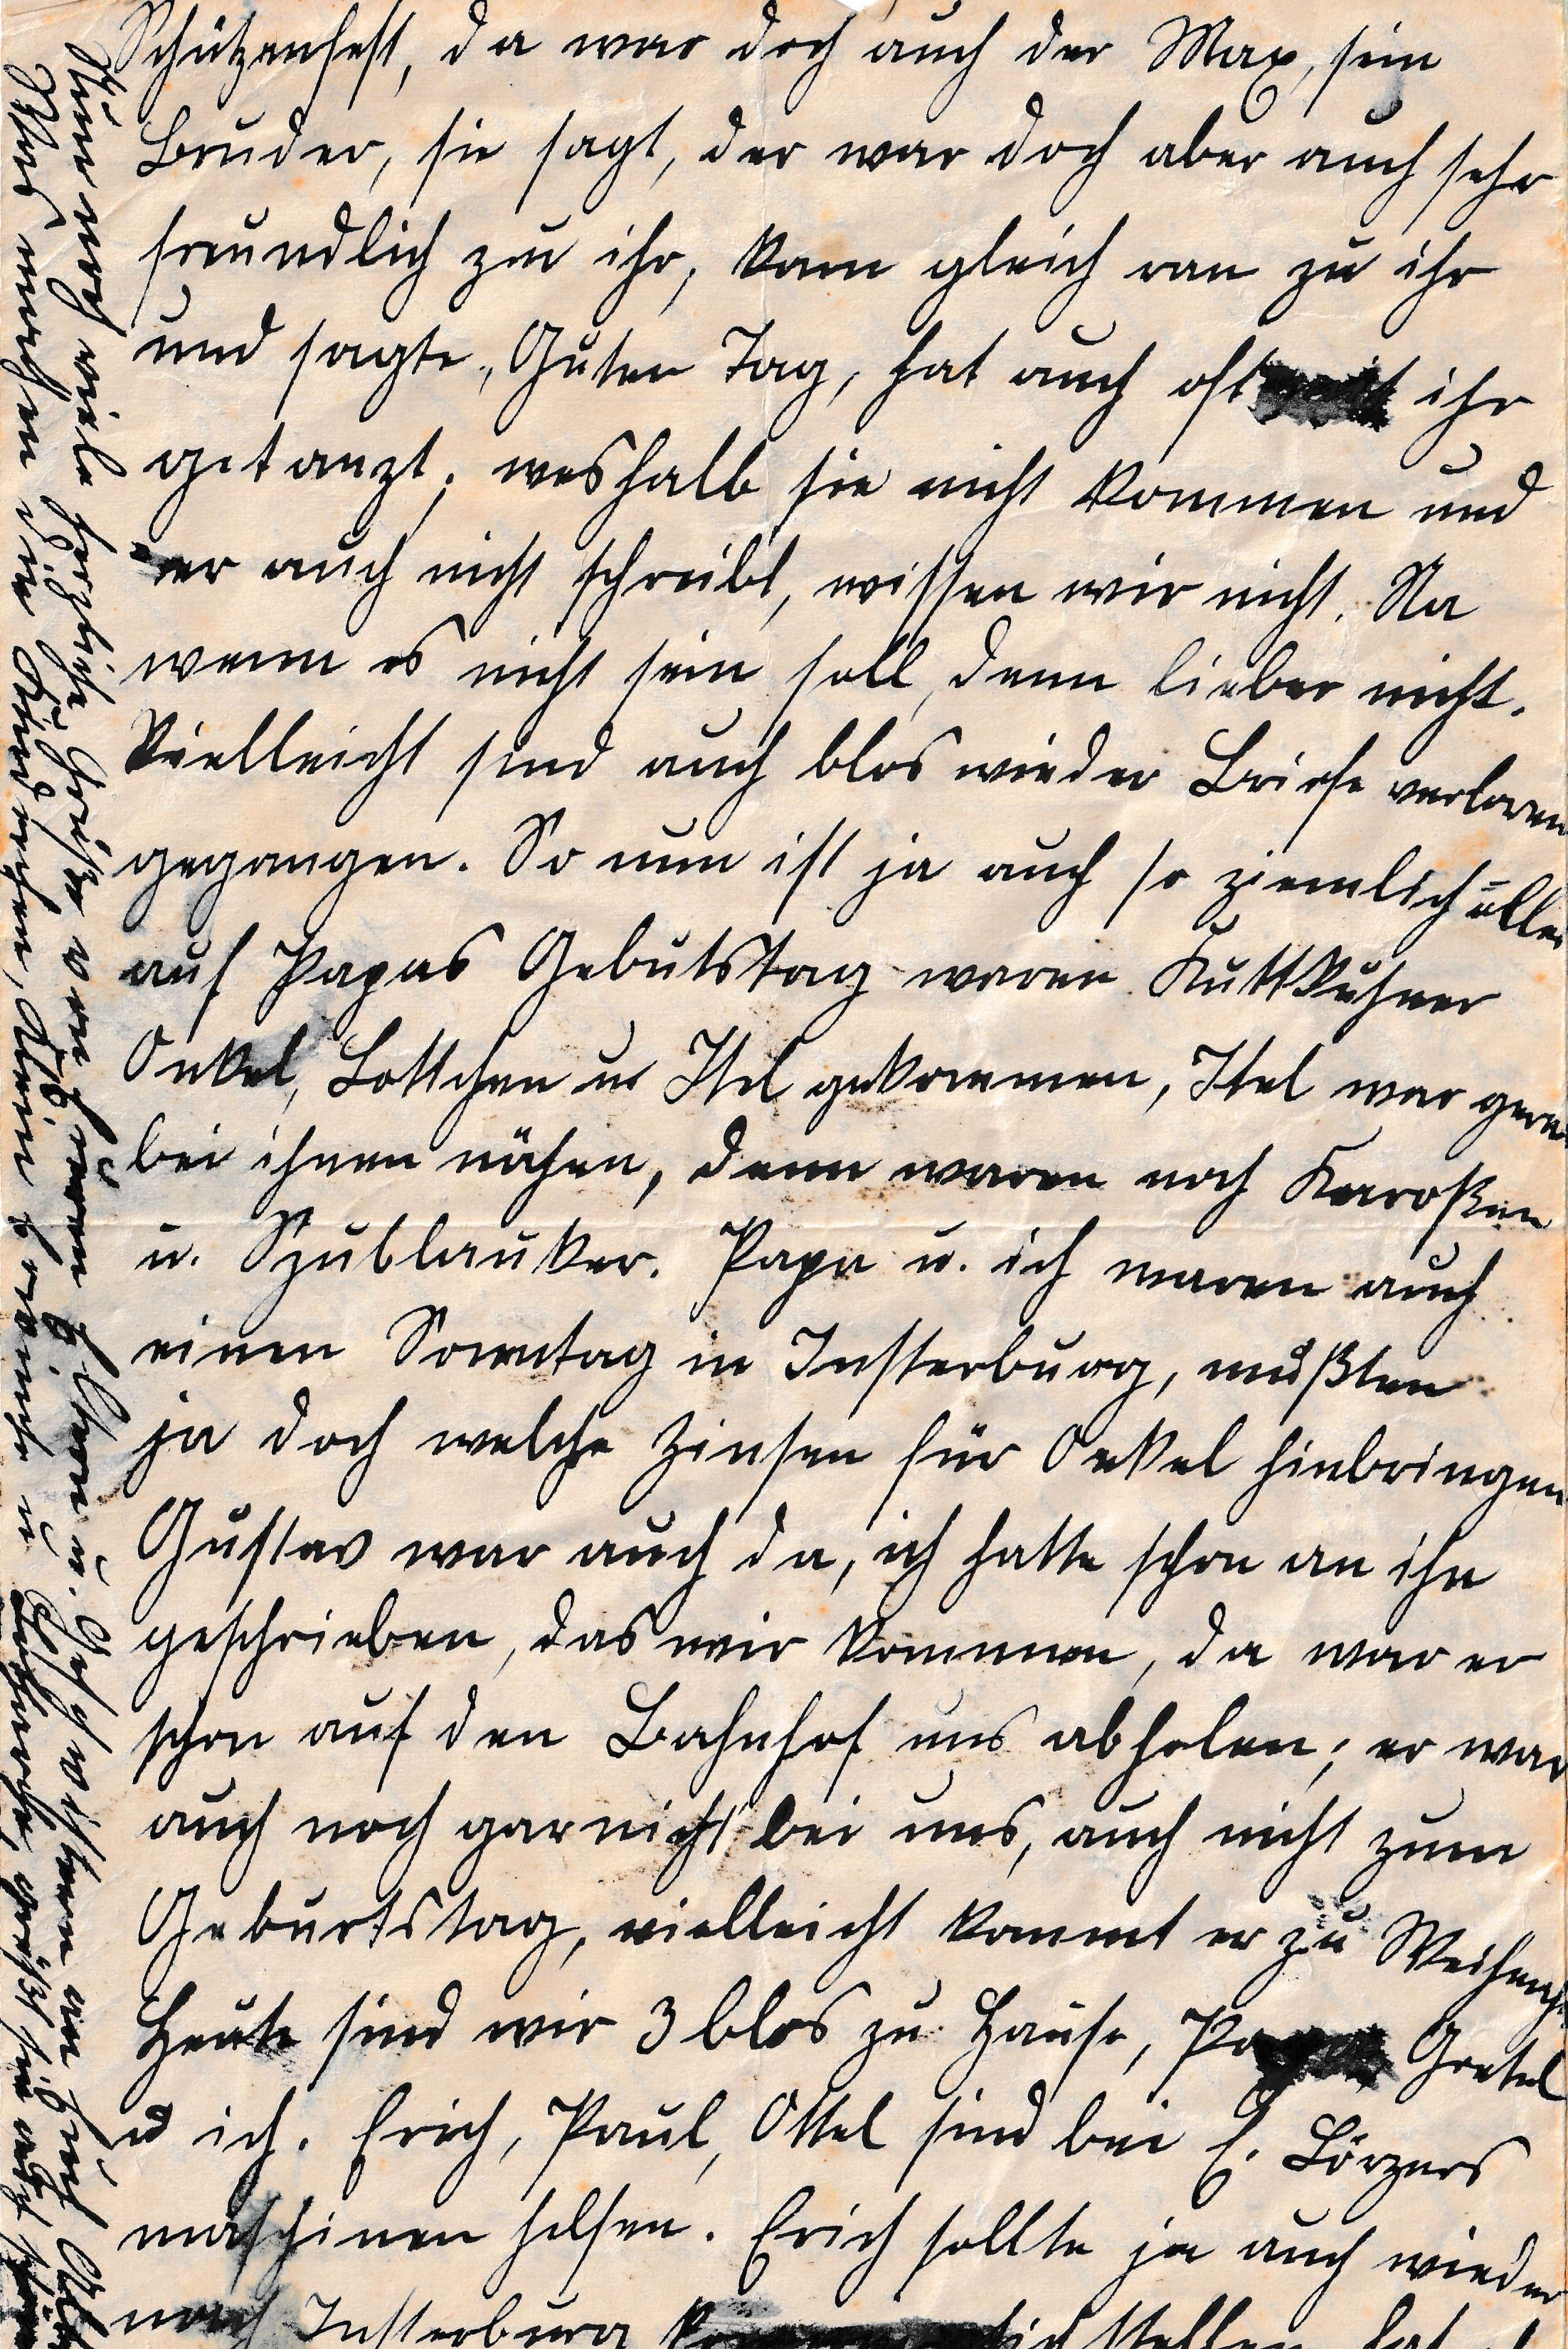 Schützenfest, da war doch auch der Max, sein
Bruder, sie sagt, der war doch aber auch sehr
freundlich zu ihr, kam gleich ran zu ihr
und sagte, Guten Tag, hat auch oft mit ihr
getanzt; weshalb sie nicht kommen und
er auch nicht schreibt, wissen wir nicht. Na
wenn es nicht sein soll, denn lieber nicht.
Vielleicht sind auch blos wieder Briefe verloren
gegangen. So nun ist ja auch so ziemlich alles
auf Papas Gebutstag waren Kuttkuhner
Onkel, Lottchen u Itel gekommen, Itel war gera
bei ihnen nähen, denn waren noch Karoßen
u. Szublauker. Papa u. ich waren auch
einen Sonntag in Insterburg, mußten
ja doch welche Zinsen für Onkel hinbringen
Gustav war auch da, ich hatte schon an ihn
geschrieben, das wir kommen, da war er
schon auf den Bahnhof uns abholen; er war
auch noch garnicht bei uns, auch nicht zum
Geburtstag, vielleicht kommt er zu Weihnach
Heute sind wir 3 blos zu Hause, Papa Gretel
u ich. Erich, Paul, Ottel sind bei E. Lörzers
maschinen helfen. Erich sollte ja auch wieder
nach Insterburg stellen, hat
Nun noch viele herzliche Grüße von Euren Eltern u. Geschwistern
Was machen die Kinderchen, klein u.